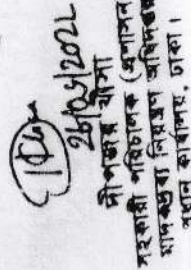 26/05/2021
দীপজয় খীসা
সহকারী পরিচালক (প্রশাসন
মাদকদ্রব্য নিয়ন্ত্রণ অধিদপ্তর
প্রধান কার্যালয়, ঢাকা।